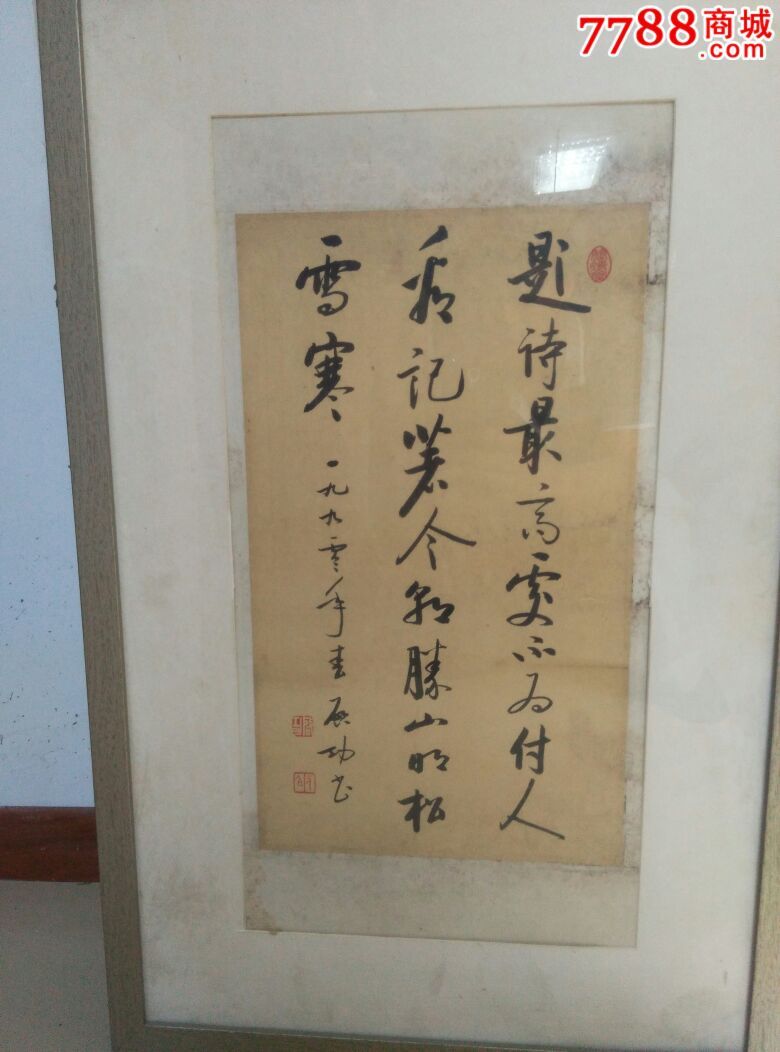 题诗最高處不为付人
看记著今朝勝山明松
雪寒 一九九零年春 启功书
7788商城
.com